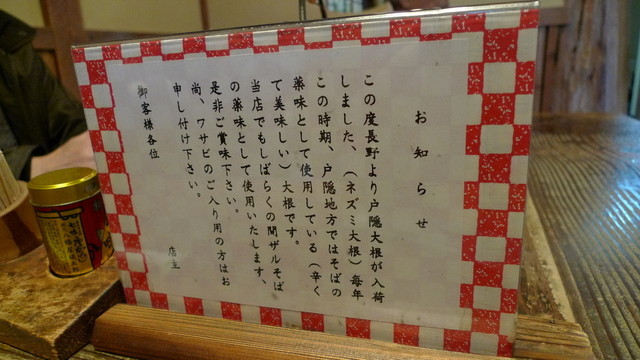 お知らせ
この度長野より戸隠大根が入荷
しました、（ネズミ大根）毎年
この時期、戸隠地方ではそばの
薬味として使用している（辛く
て美味しい）大根です。
当店でもしばらくの間ザルそば
の薬味として使用いたします、
是非ご賞味下さい。
尚、ワサビのご入り用の方はお
申し付け下さい。
御客様各位
店主